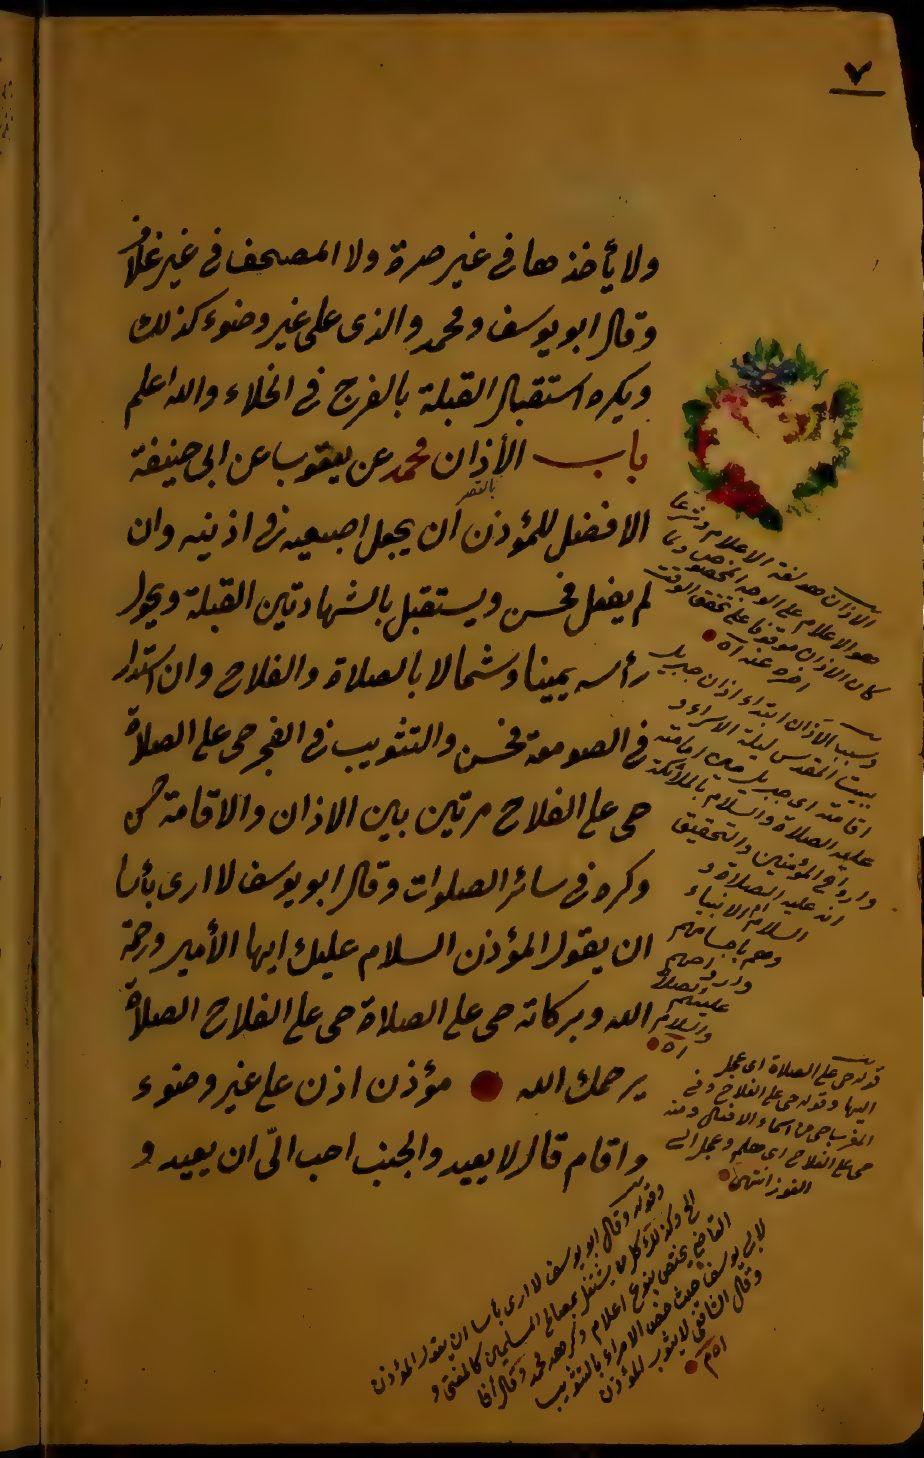 ٧
ولا يأخذها في غير صرة ولا المصحف في غير غلاف
وقال ابو يوسف ومحمد والذى على غير وضوء كذلك
ويكره استقبال القبلة بالفرج في الخلاء والله اعلم
باب الأذان محمد عن يعقوب عن ابى حنيفة
الافضل للمؤذن ان يجعل اصبعيه في اذنيه وان
لم يفعل فحسن ويستقبل بالشهادتين القبلة ويحول
رأسه يمينا وشمالا بالصلاة والفلاح وان استدار
في الصومعة فحسن والتثويب في الفجر حى على الصلاة
حى على الفلاح مرتين بين الاذان والاقامة حسن
وكره في سائر الصلوات وقال ابو يوسف لا ارى بأسا
ان يقول المؤذن السلام عليك ايها الأمير ورحمة
الله وبركاته حى على الصلاة حى على الفلاح الصلاة
يرحمك الله مؤذن اذن على غير وضوء
واقام قال لا يعيد والجنب احب الىّ ان يعيد و
الاذان هو لغة الاعلام وشرعا
هو الاعلام على الوجه المخصوص ولما
كان الاذان موقوفا على تحقق الوقت
اخره عنه اه
وسبب الآذان ابتداء اذان جبريل
ببيت المقدس ليلة الاسراء و
اقامته اى جبريل حين امامته
عليه الصلاة والسلام بالملائكة
وارواح المؤمنين والتحقيق
انه عليه الصلاة و
السلام امّ الانبياء
وهم باجسامهم
وارواحهم
عليهم الصلاة
والسلام
اه
قوله حى على الصلاة اى عجل
اليها وقوله حى على الفلاح وفي
المغرب حى من اسماء الافعال ومنه
حى على الفلاح اى هلم وعجل الى
الفوز انتهى
وقوله وقال ابو يوسف لا ارى بأسا ان يقول المؤذن
الخ وكذلك كل من يشتغل بمصالح المسلمين كالمفتى و
القاضي يختص بنوع اعلام وكرهه محمد وقال أفا
لابى يوسف حيث خص الامراء بالتثويب
وقال الشافعى لا يثوب المؤذن
اهم